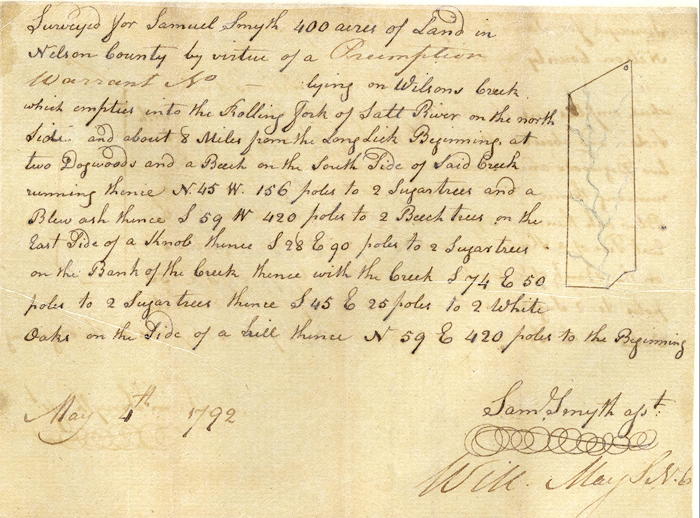 Surveyed for Samuel Smyth 400 acres of Land in
Nelson County by virtue of a Preemption
Warrant No — lying on Wilsons Creek
which empties into the Rolling fork of Salt River on the north
Side and about 8 Miles from the Long Lick Beginning at
two Dogwoods and a Beech on the South Side of Said Creek
running thence N 45 W 156 poles to 2 Sugartrees and a
Blew ash thence S 59 W 420 poles to 2 Beech trees on the
East Side of a Knob thence S 28 E 90 poles to 2 Sugartrees
on the Bank of the Creek thence with the Creek S 74 E 50
poles to 2 Sugartrees thence S 45 E 25 poles to 2 White
Oaks on the Side of a hill thence N 59 E 420 poles to the Beginning
May 4th 1792
Saml. Smyth asst.
Will. May S. N. C